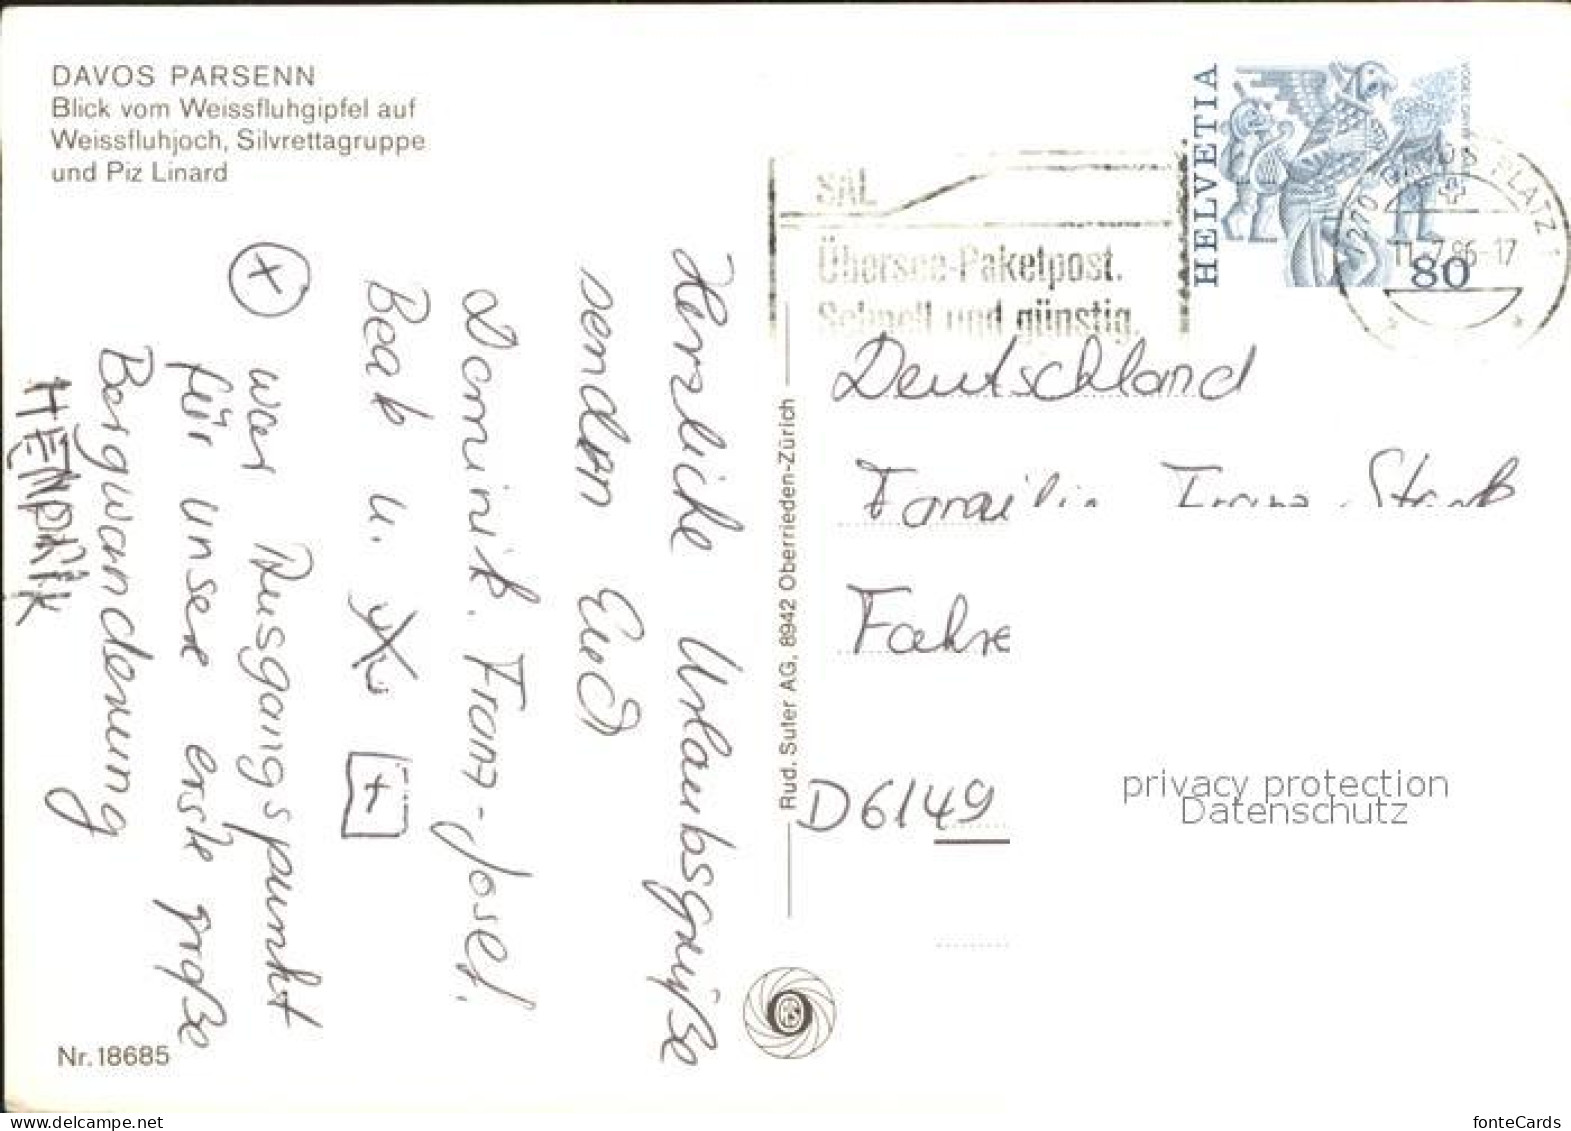 DAVOS PARSENN
Blick vom Weissfluhgipfel auf
Weissfluhjoch, Silvrettagruppe
und Piz Linard
Herzliche Urlaubsgrüße
senden Euch
Dominik, Franz-Josef,
Beate u.
+
× war Ausgangspunkt
für unsere erste große
Bergwanderung
HENDRIK
Nr. 18685
Rud. Suter AG, 8942 Oberrieden-Zürich
SAL
Übersee-Paketpost.
Schnell und günstig.
HELVETIA
80
7270 DAVOS PLATZ 1
11.-7.86-17
Deutschland
Familie Franz
Fahre
D 6149
privacy protection
Datenschutz
fonteCards
www.delcampe.net